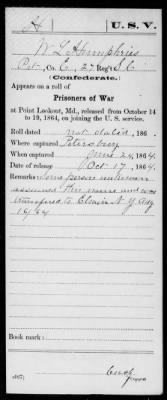 H U. S. V.
W L Humphries
Pvt, Co. E, 27 Reg't S.C.
(Confederate.)
Appears on a roll of
Prisoners of War
at Point Lookout, Md., released from October 14
to 19, 1864, on joining the U. S. service.
Roll dated not stated, 186
Where captured Petersburg
When captured June 24, 1864.
Date of release Oct 17, 1864.
Remarks: Some person unknown
assumed this name and was
transferred to Elmira N.Y. Aug
1864
Book mark:
(487)
Copyist.